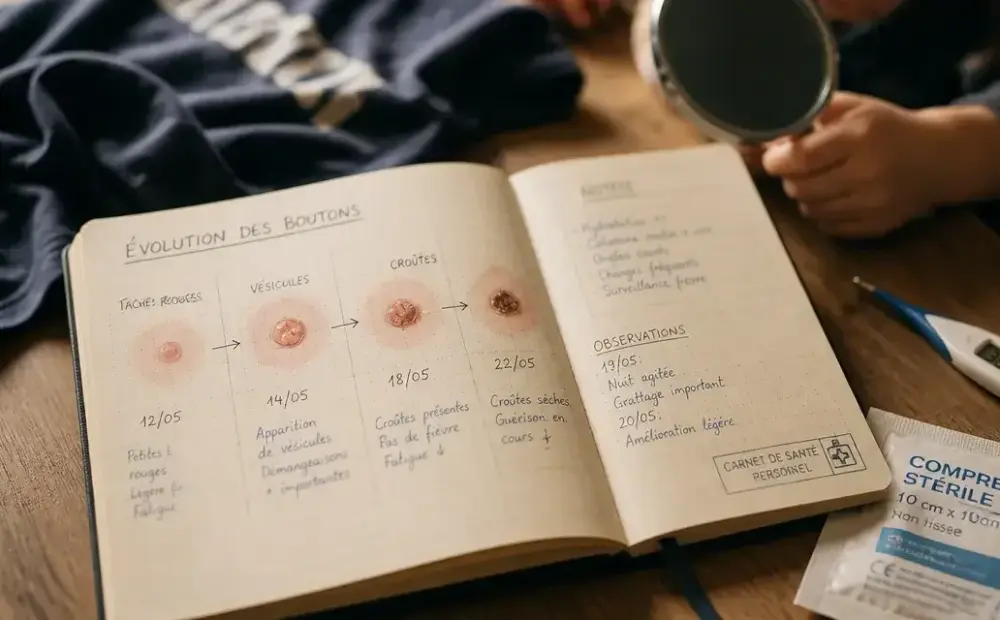 ÉVOLUTION DES BOUTONS
TACHES ROUGES
12/05
Petites
rouges
Légère
Fatigue
VÉSICULES
14/05
Apparition
de vésicules
Démangeaisons
+ importantes
CROÛTES
18/05
Croûtes présentes
Pas de fièvre
Fatigue ↓
22/05
Croûtes sèches
Guérison en
cours ↓
Hydratation
Changes fréquents
Surveillance fièvre
OBSERVATIONS
19/05:
Nuit agitée
Grattage important
20/05:
Amélioration légère
CARNET DE SANTÉ
PERSONNEL
COMPRE
STÉRILE
10 cm x 10cm
Non tissée
CE